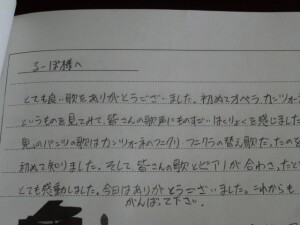 るーぽ様へ
とても良い歌をありがとうございました。初めてオペラ、カンツォーネ
というものを見てみて、皆さんの歌声にものすごいはくりょくを感じました
鬼のパンツの歌はカンツォーネのフニクリ フニクラの替え歌だったのを
初めて知りました。そして、皆さんの歌とピアノが合わさったと
とても感動しました。今日はありがとうございました。これからも
がんばって下さい。